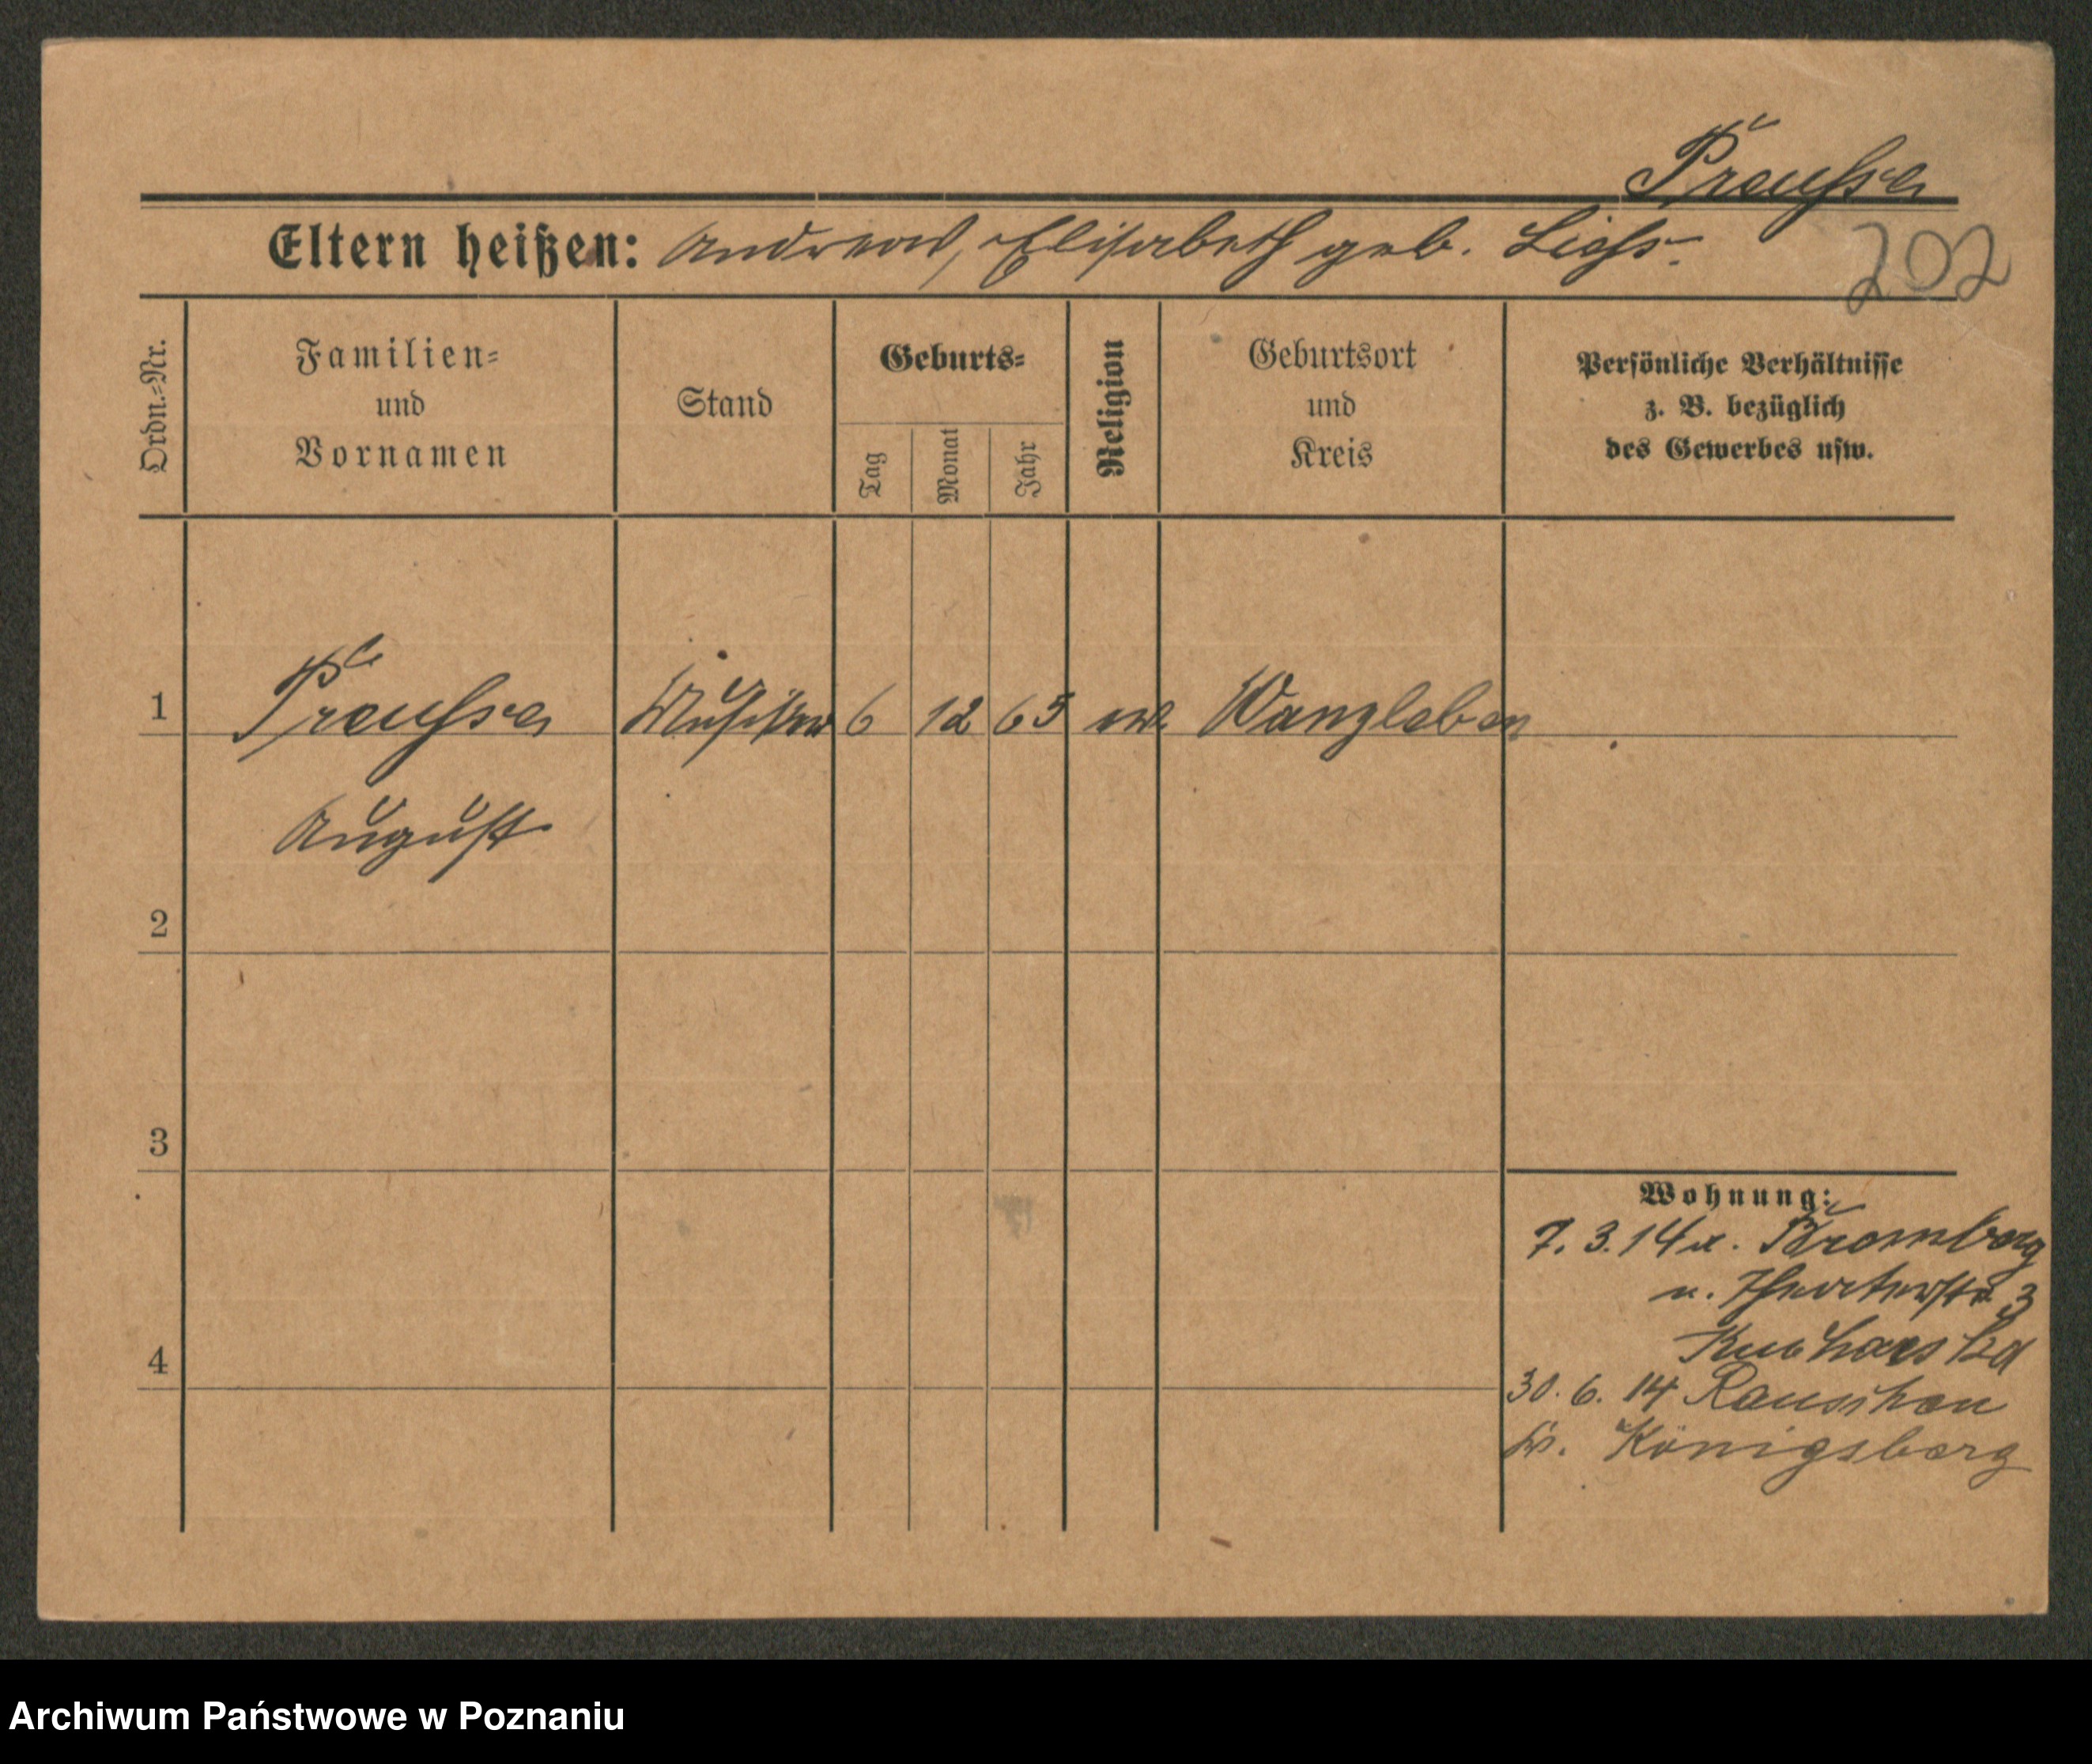 Preusse
Eltern heißen: Andreas, Elisabeth geb. Liess.
202
Ordn.-Nr.
Familien-
und
Vornamen
Stand
Geburts-
Tag
Monat
Jahr
Religion
Geburtsort
und
Kreis
Persönliche Verhältnisse
z. B. bezüglich
des Gewerbes usw.
1 Preusse Musiker 6 12 65 ev. Wanzleben
August
2
3
4
Wohnung:
7. 3. 14 a. Bromberg
n. 3
30. 6. 14 Rauschen
Kr. Königsberg
Archiwum Państwowe w Poznaniu